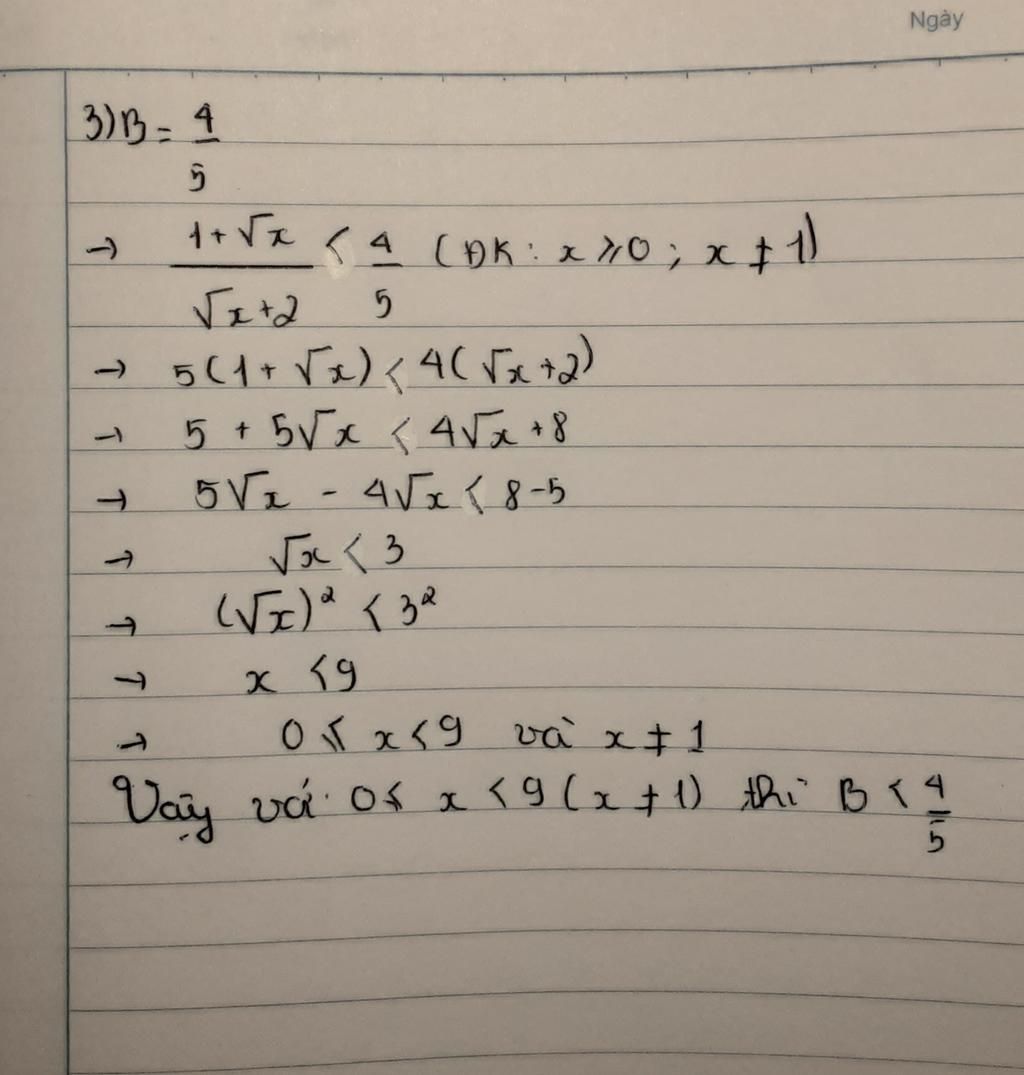 Ngày
3) B = 4/5
→ (1 + √x)/(√x + 2) < 4/5 (ĐK : x ⩾ 0 ; x ≠ 1)
→ 5(1 + √x) < 4(√x + 2)
→ 5 + 5√x < 4√x + 8
→ 5√x - 4√x < 8 - 5
→ √x < 3
→ (√x)² < 3²
→ x < 9
→ 0 ⩽ x < 9 và x ≠ 1
Vậy với 0 ⩽ x < 9 (x ≠ 1) thì B < 4/5